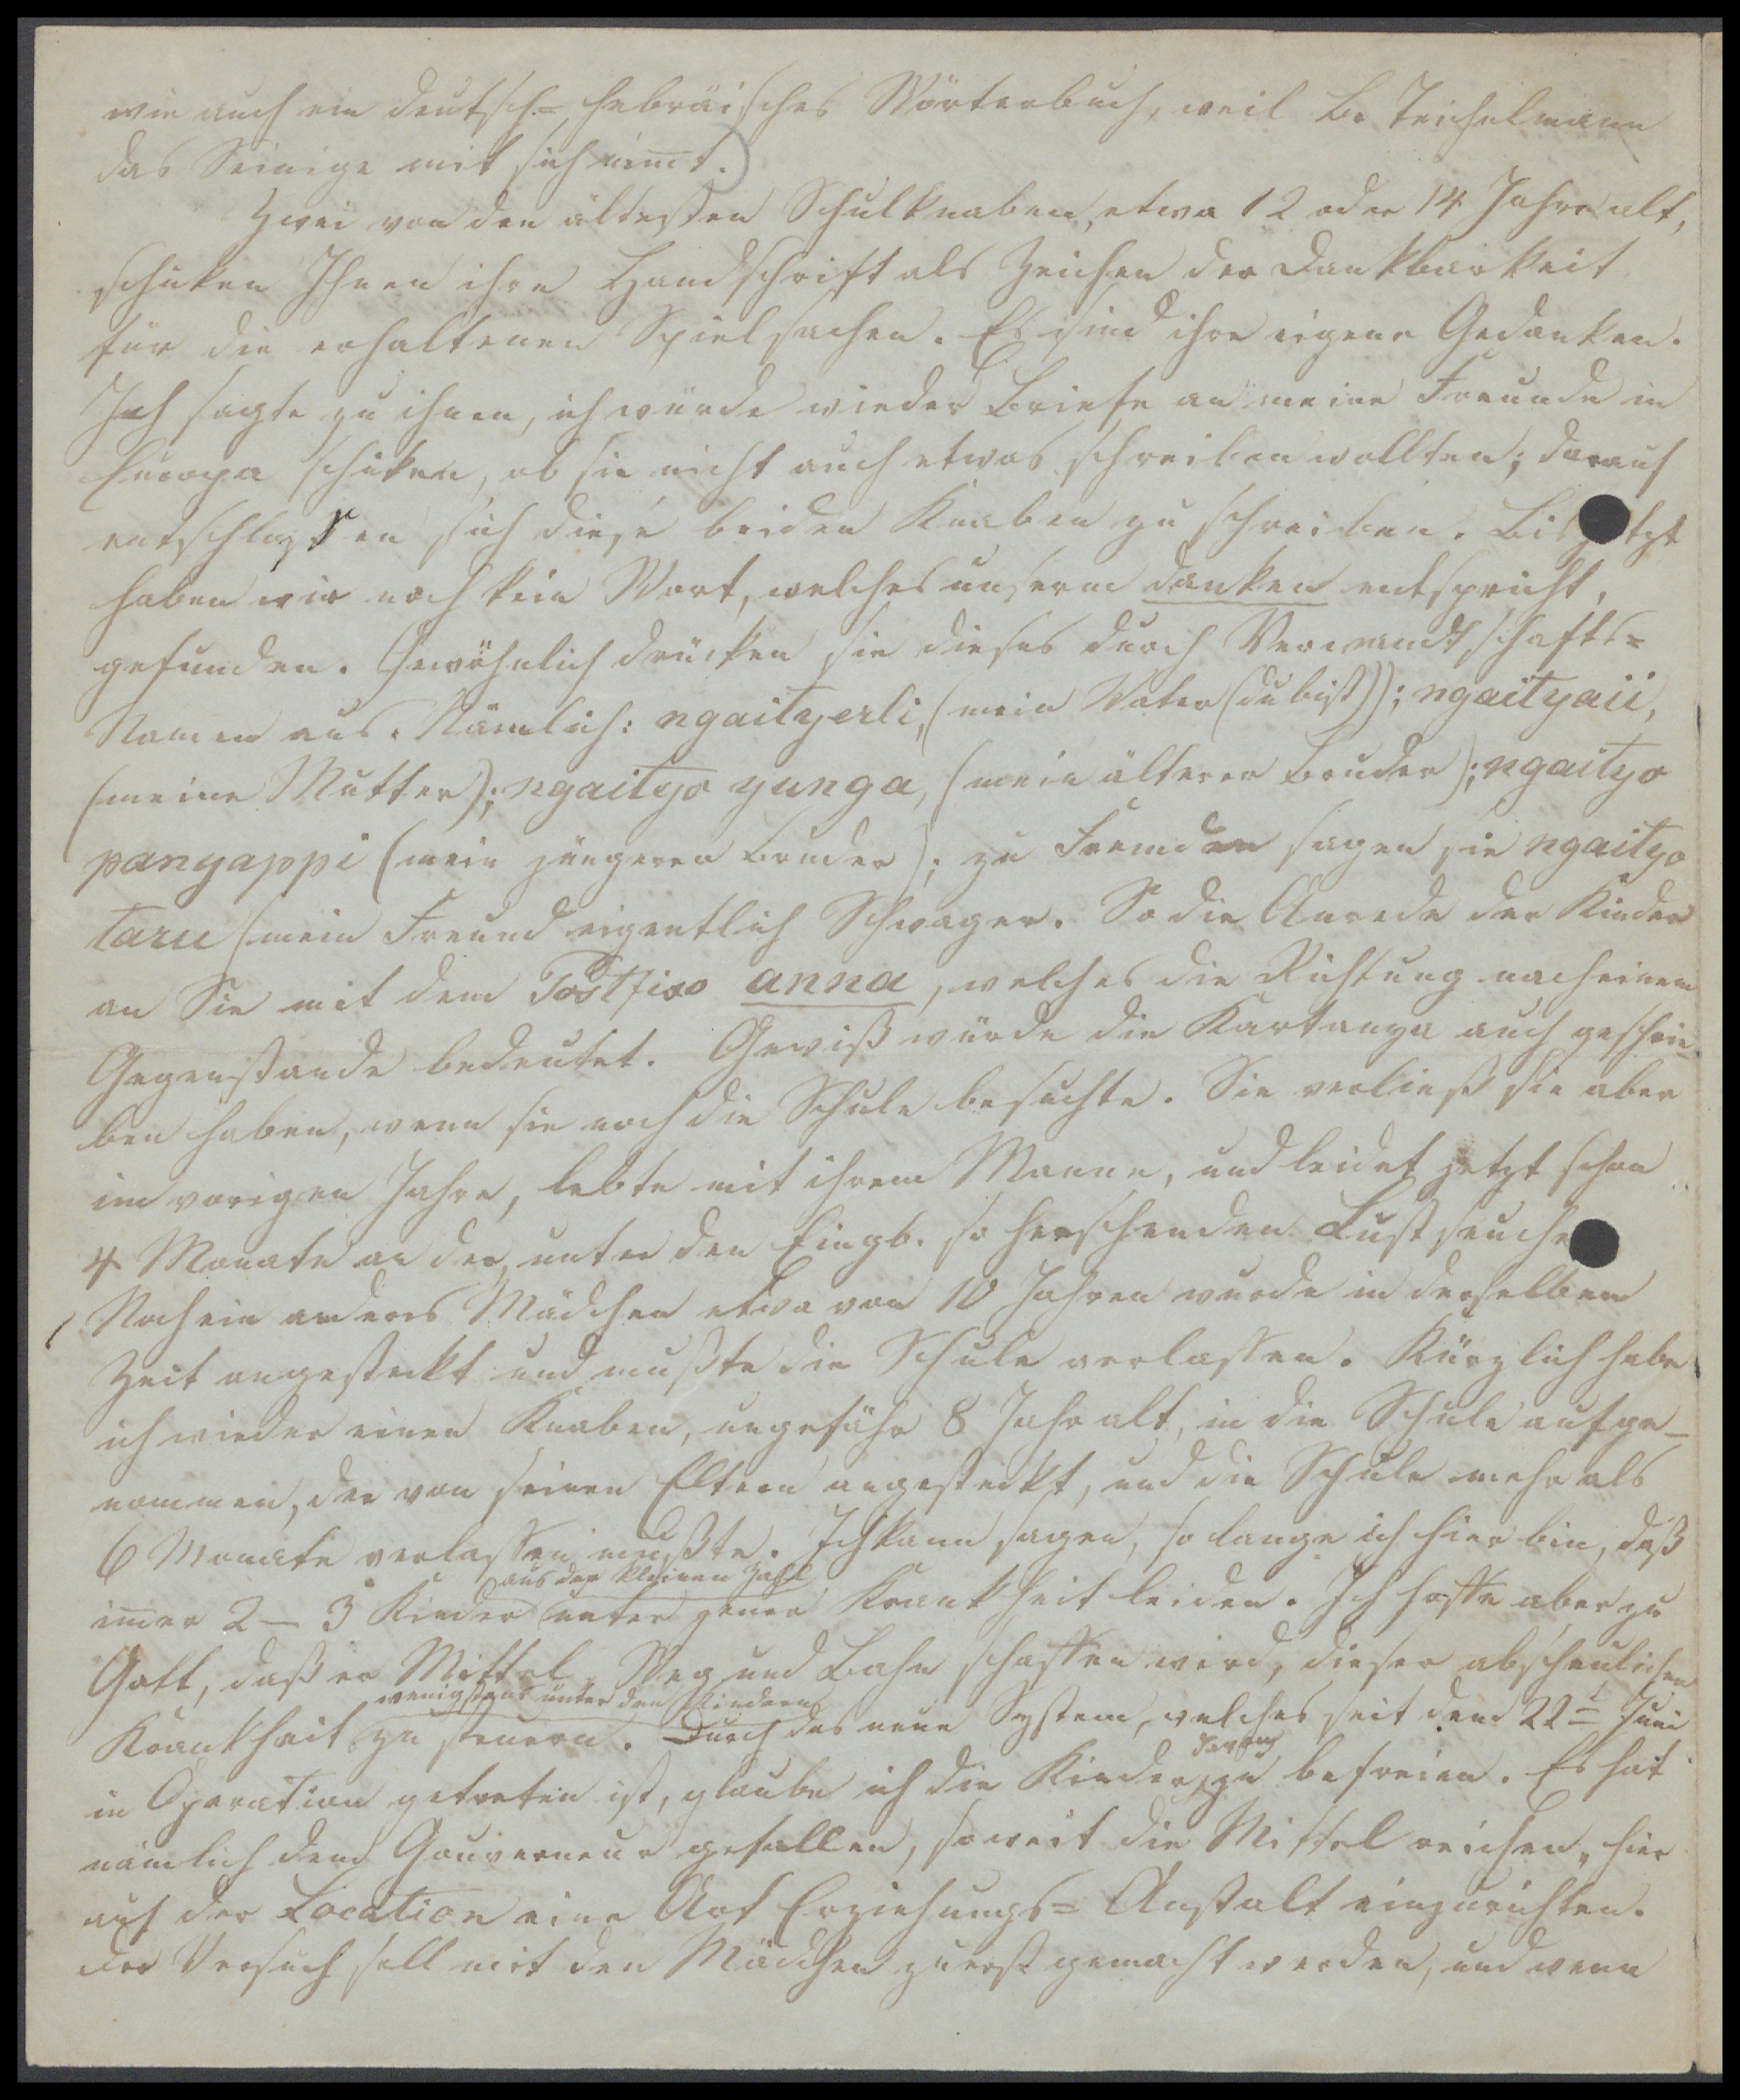 wie auch ein deutsch-hebräisches Wörterbuch, weil Br Teichelmann
das Seinige mit sich nim̅t.)
Zwei von den ältesten Schulknaben, etwa 12 oder 14 Jahre alt,
schicken Ihnen ihre Handschrift als Zeichen der Dankbarkeit
für die erhaltenen Spielsachen. Es sind ihre eigene Gedanken.
Ich sagte zu ihnen, ich würde wieder Briefe an meine Freunde in
Europa schicken, ob sie nicht auch etwas schreiben wollten; darauf
entschlossen sich diese beiden Knaben zu schreiben. Bis jetzt
haben wir noch kein Wort, welches unserm danken entspricht,
gefunden. Gewöhnlich drücken sie dieses durch Verwandtschafts-
Namen aus. Nämlich: ngaityerli, (mein Vater (du bist)); ngaityaii,
(meine Mutter); ngaityo yunga, (mein älterer Bruder); ngaityo
panyappi (mein jüngerer Bruder); zu Fremden sagen sie ngaityo
taru (mein Freund eigentlich Schwager. So die Anrede der Kinder
an Sie mit dem Postfixo anna, welches die Richtung nach einem
Gegenstande bedeutet. Gewiß würde die Kartanya auch geschrie-
ben haben, wenn sie noch die Schule besuchte. Sie verließ sie aber
im vorigen Jahre, lebte mit ihrem Manne, und leidet jetzt schon
4 Monate an der, unter den Eingb. so herschenden Lustseuche
Noch ein anders Mädchen etwa von 10 Jahren wurde in derselben
Zeit angesteckt und mußte die Schule verlassen. Kürzlich habe
ich wieder einen Knaben, ungefähr 8 Jahr alt, in die Schule aufge-
nommen, der von seinen Eltern angesteckt, und die Schule mehr als
6 Monate verlassen mußte. Ich kann sagen, so lange ich hier bin, daß
aus der kleinen Zahl
im̅er 2 – 3 Kinder unter jener Krankheit leiden. Ich hoffe aber zu
Gott, daß er Mittel, Weg und Bahn schaffen wird, dieser abscheulichen
wenigstens unter den Kindern
Krankheit zu steuern. Durch das neue System, welches seit dem 22t Juni
davon
in Operation getreten ist, glaube ich die Kinder zu befreien. Es hat
nämlich dem Gouverneur gefallen, soweit die Mittel reichen, hier
auf der Location eine Art Erziehungs-Anstalt einzurichten.
Der Versuch soll mit den Mädchen zuerst gemacht werden, und wenn